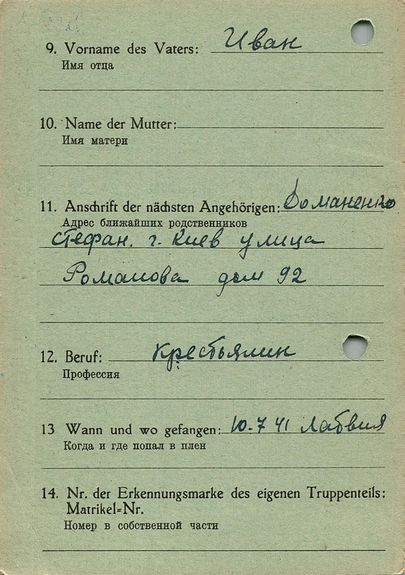 9. Vorname des Vaters: Иван
Имя отца
10. Name der Mutter:
Имя матери
11. Anschrift der nächsten Angehörigen: Доманенко
Адрес ближайших родственников
Стефан. г. Киев улица
Романова дом 92
12. Beruf: Крестьянин
Профессия
13 Wann und wo gefangen: 10.7 41 Латвия
Когда и где попал в плен
14. Nr. der Erkennungsmarke des eigenen Truppenteils:
Matrikel-Nr.
Номер в собственной части